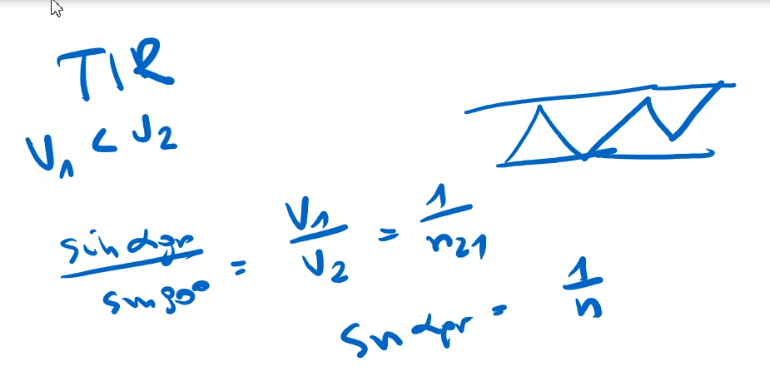 TIR
V₁ < V₂
sin αgr / sin 90° = V₁ / V₂ = 1 / n₂₁
sn αgr = 1 / n